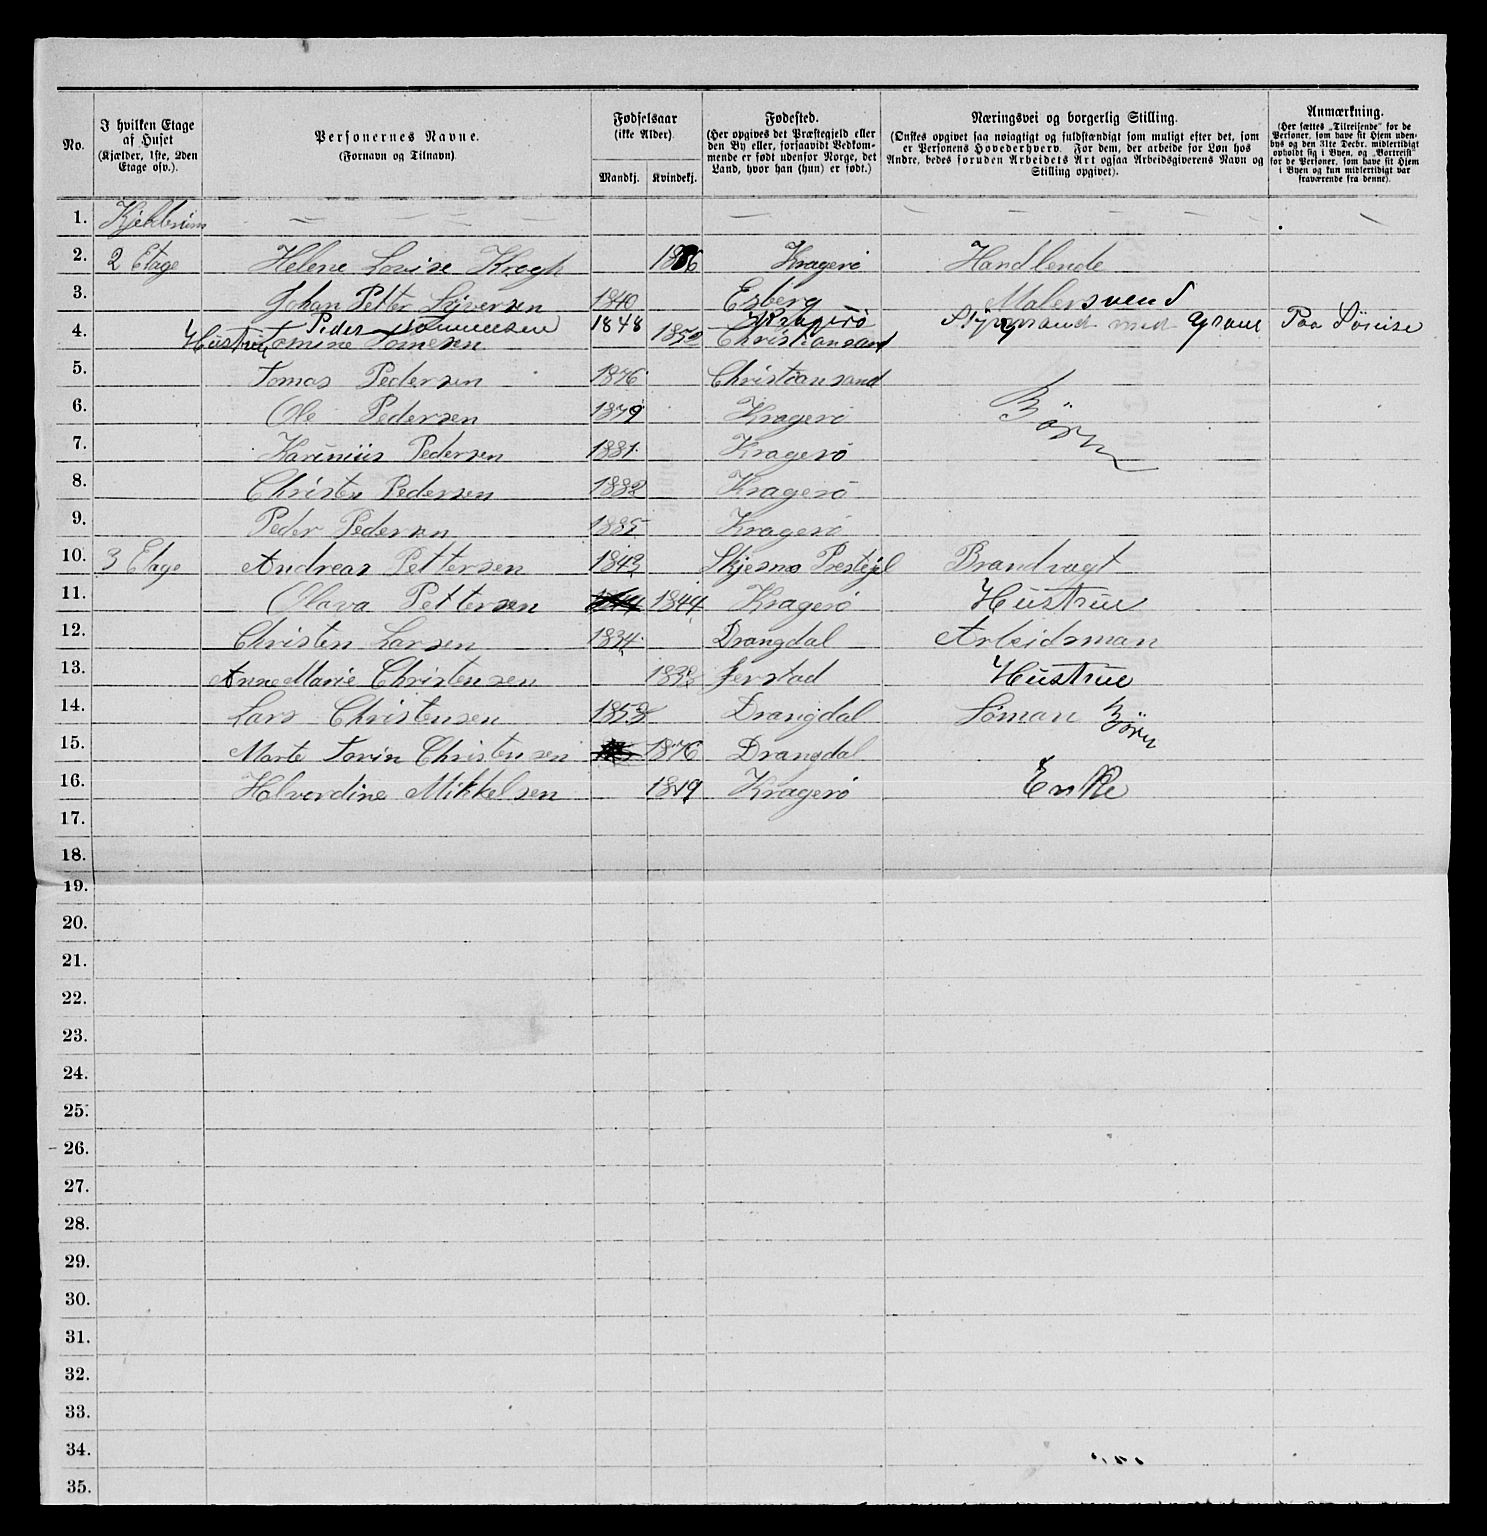 No. | I hvilken Etage af Huset (Kjælder, 1ste, 2den Etage osv.). | Personernes Navne. (Fornavn og Tilnavn) | Fødselsaar (ikke Alder). Mandkj. | Kvindekj. | Fødested. (Her opgives det Præstegjeld eller den By eller, forsaavidt Vedkommende er født udenfor Norge, det Land, hvor han (hun) er født.) | Næringsvei og borgerlig Stilling. (Ønskes opgivet saa nøiagtigt og fuldstændigt som muligt efter det, som er Personens Hovederhverv. For dem, der arbeide for Løn hos Andre, bedes foruden Arbeidets Art ogsaa Arbeidsgiverens Navn og Stilling opgivet). | Anmærkning. (Her sættes „Tilreisende" for de Personer, som have sit Hjem udenbys og den 31te Decbr. midlertidigt opholdt sig i Byen, og „Bortreist" for de Personer, som have sit Hjem i Byen og kun midlertidigt var fraværende fra denne).
1. — — — — — — — —
2. 2 Etage Helene Lovise Krogh Kragerö Handlende
3. Johan Petter 1840 Malersvend
Peder 1848 Kragerö med
4. Hustrue Christiansand
5. Tomas Pedersen 1876 Christiansand
6. Ole Pedersen 1879 Kragerö Börn
7. Karinius Pedersen 1881 Kragerö
8. Christen Pedersen 1882 Kragerö
9. Peder Pedersen 1885 Kragerö
10. 3 Etage Andreas Pettersen 1843 Brandvagt
11. Olava Pettersen 1844 Kragerö Hustrue
12. Christen Larsen 1834 Drangdal Arbeidsman
13. Anne Marie Christensen Hustrue
14. Lars Christensen Drangdal Söman Börn
15. Marte Torin Christensen 1876 Drangdal
16. Halvordine Mikkelsen 1819 Kragerö Enke
17.
18.
19.
20.
21.
22.
23.
24.
25.
26.
27.
28.
29.
30.
31.
32.
33.
34.
35.